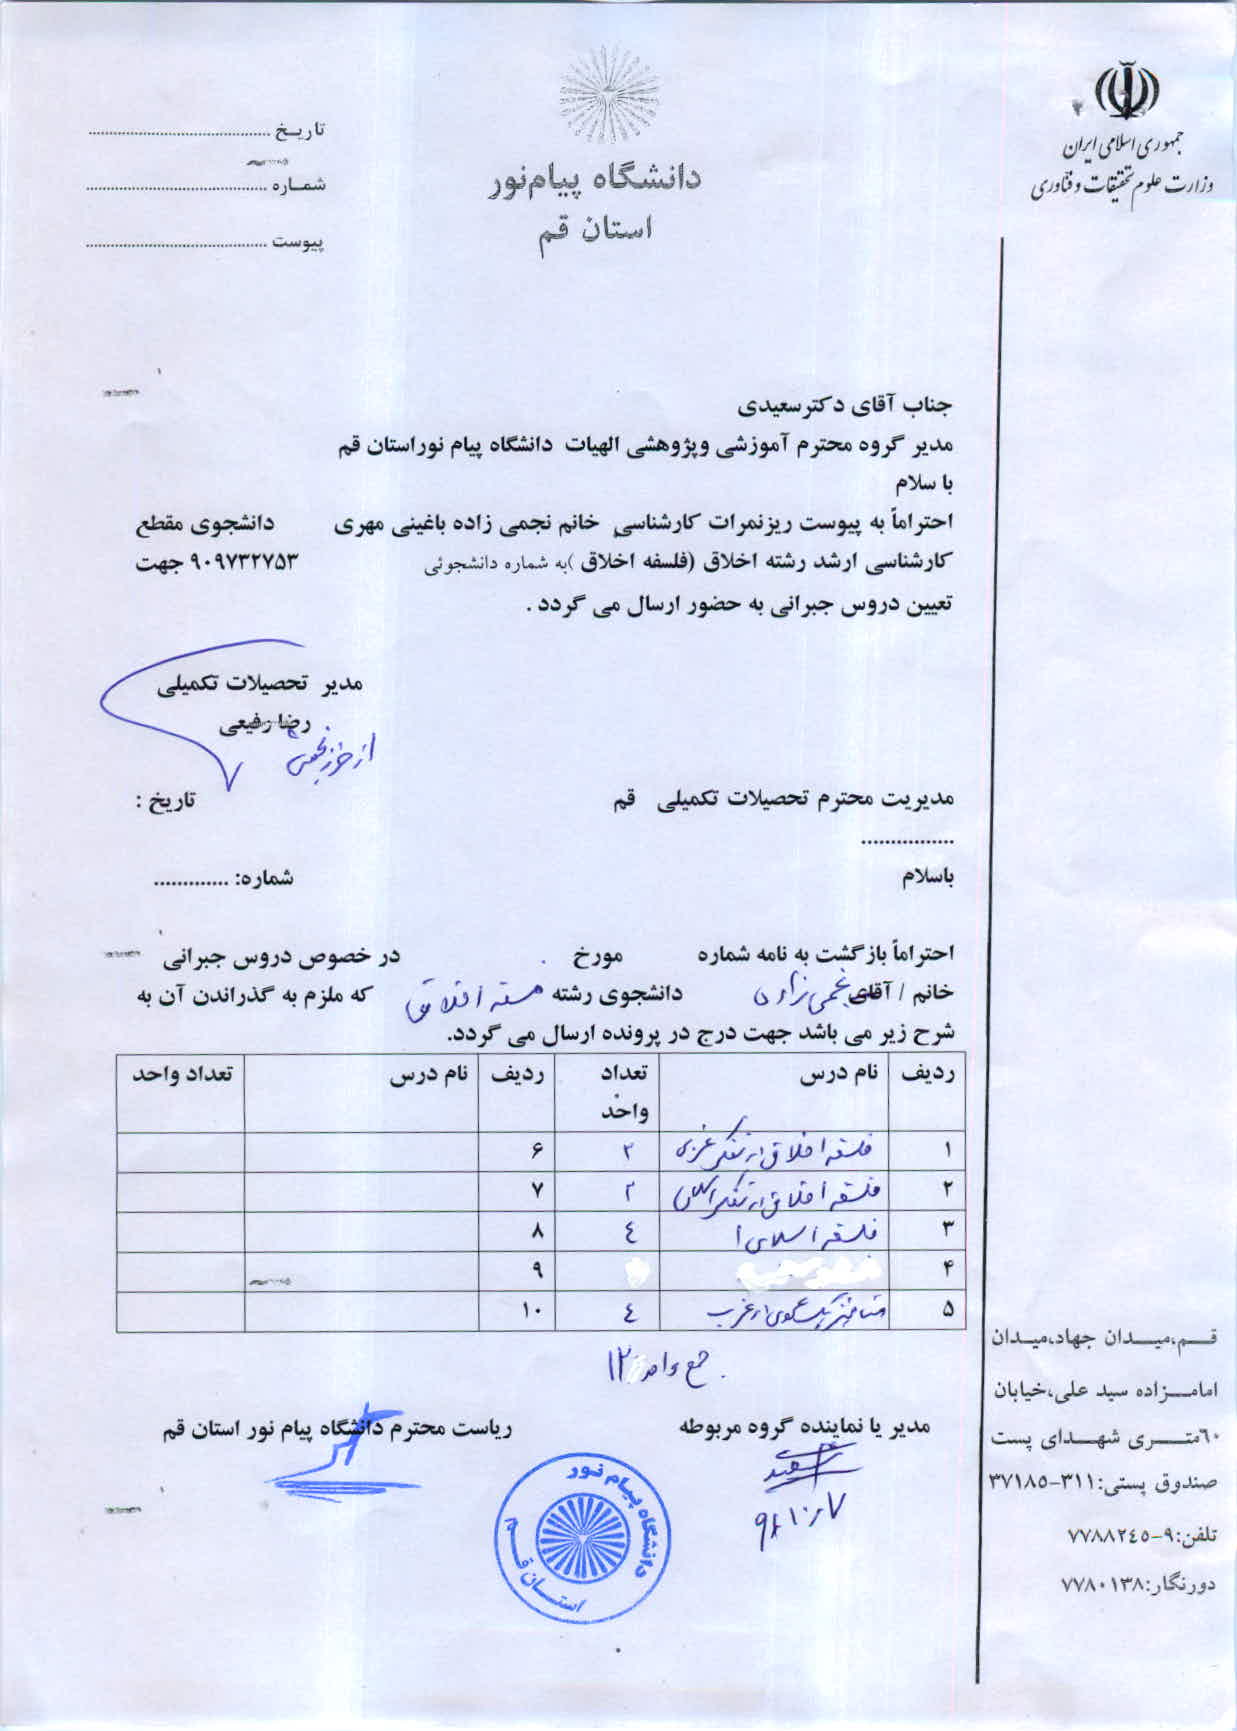 جمهوری اسلامی ایران
وزارت علوم تحقیقات و فناوری
دانشگاه پیام‌نور
استان قم
تاریخ ........................................
شماره ........................................
پیوست ........................................
جناب آقای دکترسعیدی
مدیر گروه محترم آموزشی وپژوهشی الهیات دانشگاه پیام نوراستان قم
با سلام
احتراماً به پیوست ریزنمرات کارشناسی خانم نجمی زاده باغینی مهری دانشجوی مقطع
کارشناسی ارشد رشته اخلاق (فلسفه اخلاق )به شماره دانشجوئی ۹۰۹۷۳۲۷۵۳ جهت
تعیین دروس جبرانی به حضور ارسال می گردد .
مدیر تحصیلات تکمیلی
رضا رفیعی
مدیریت محترم تحصیلات تکمیلی قم تاریخ :
................
باسلام شماره: .............
احتراماً بازگشت به نامه شماره مورخ . در خصوص دروس جبرانی
خانم / آقای نجمی زاده دانشجوی رشته فلسفه اخلاق که ملزم به گذراندن آن به
شرح زیر می باشد جهت درج در پرونده ارسال می گردد.
ردیف نام درس تعداد واحد ردیف نام درس تعداد واحد
۱ فلسفه اخلاق در تفکر غربی ۲ ۶
۲ فلسفه اخلاق در تفکر اسلامی ۲ ۷
۳ فلسفه اسلامی ۱ ٤ ۸
۴ ۹
۵ غرب ٤ ۱۰
جمع واحد ۱۲
مدیر یا نماینده گروه مربوطه ریاست محترم دانشگاه پیام نور استان قم
دانشگاه پیام نور
استان قم
قم،میدان جهاد،میدان
امامزاده سید علی،خیابان
٦٠متری شهدای پست
صندوق پستی:۳۱۱-۳۷۱۸۵
تلفن:۹-۷۷۸۸۲٤۵
دورنگار:۷۷۸۰۱۳۸